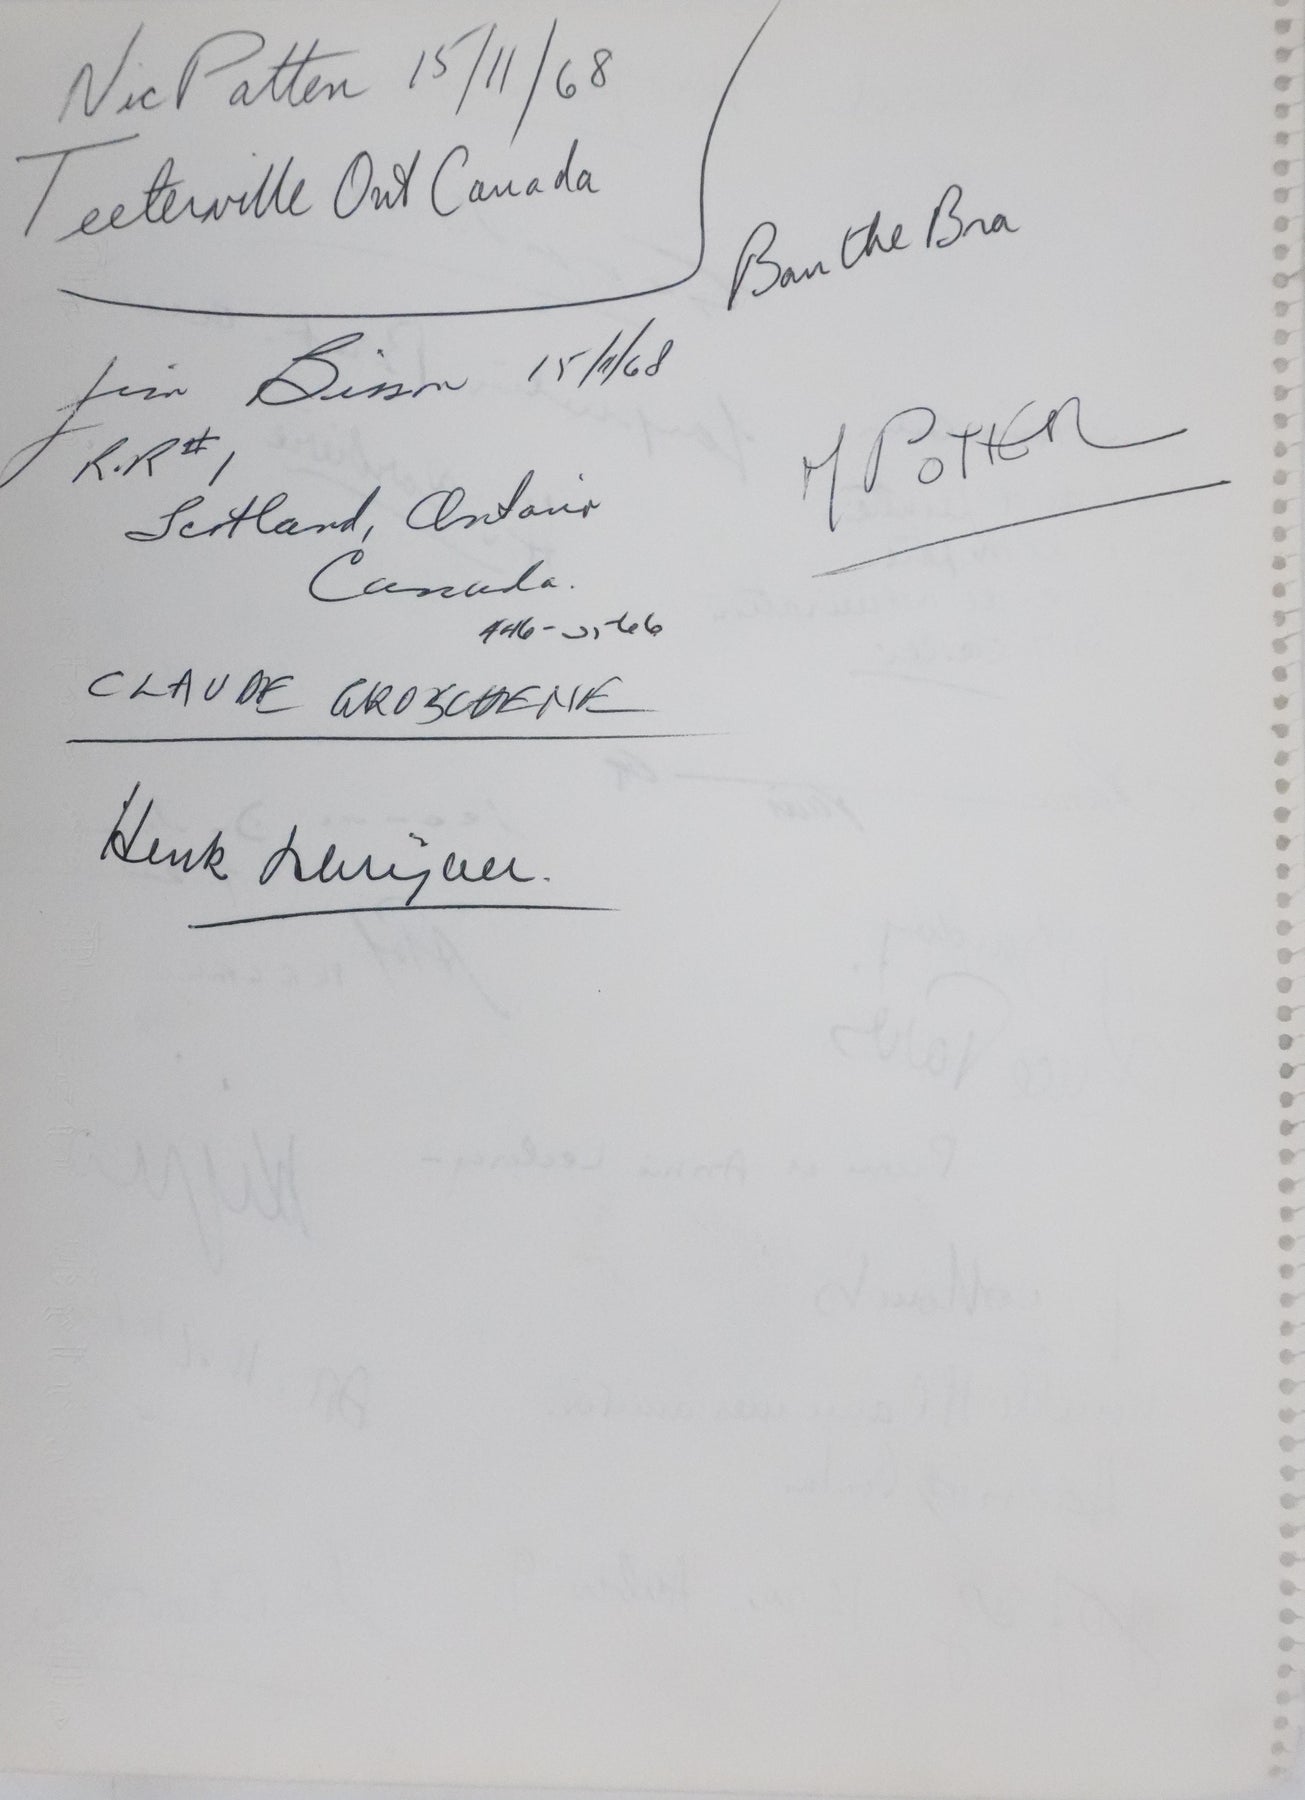 Nic Patten 15/11/68
Teeterville Ont Canada
Ban the Bra
Jim Bisson 15/11/68
R.R #1
Scotland, Ontario
Canada.
M POTTER
CLAUDE GROSCHENE
Henk